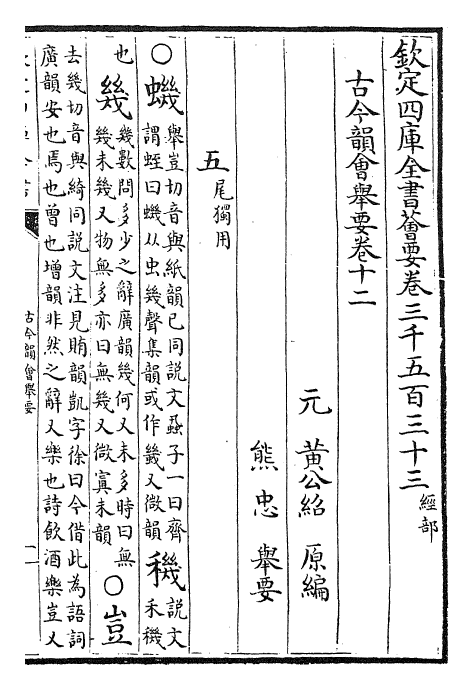 欽定四庫全書薈要卷三千五百三十三 經部
古今韻會舉要卷十二
元 黃公紹 原編
熊 忠 舉要
五 尾獨用
○蟣 舉豈切音與紙韻已同說文蝨子一曰齊
謂蛭曰蟣从虫幾聲集韻或作 又微韻 穖 說文
禾穖
也 幾 幾數問多少之辭廣韻幾何又未多時曰無
幾未幾又物無多亦曰無幾又微寘未韻 ○豈
去幾切音與綺同說文注見賄韻凱字徐曰今借此為語詞
廣韻安也焉也曾也增韻非然之辭又樂也詩飲酒樂豈又
古今韻會舉要 一